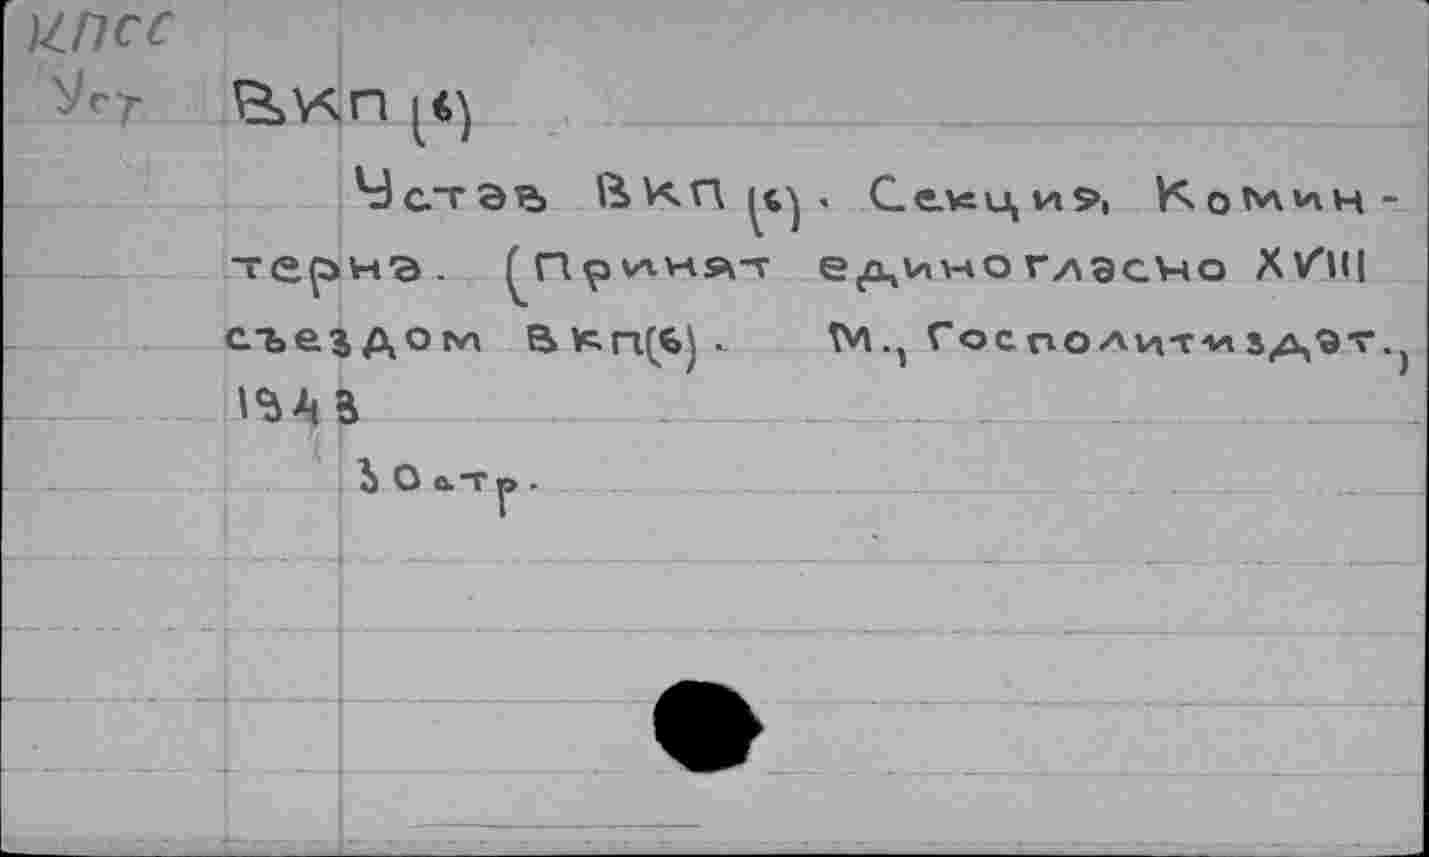 КПСС
Уст ВКП(б)
Устав ВКП(б). Секция Комин-
терна. (Принят единогласно XVIII
съездом ВКП(б). М., Госполитиздат.,
1943
30 стр.